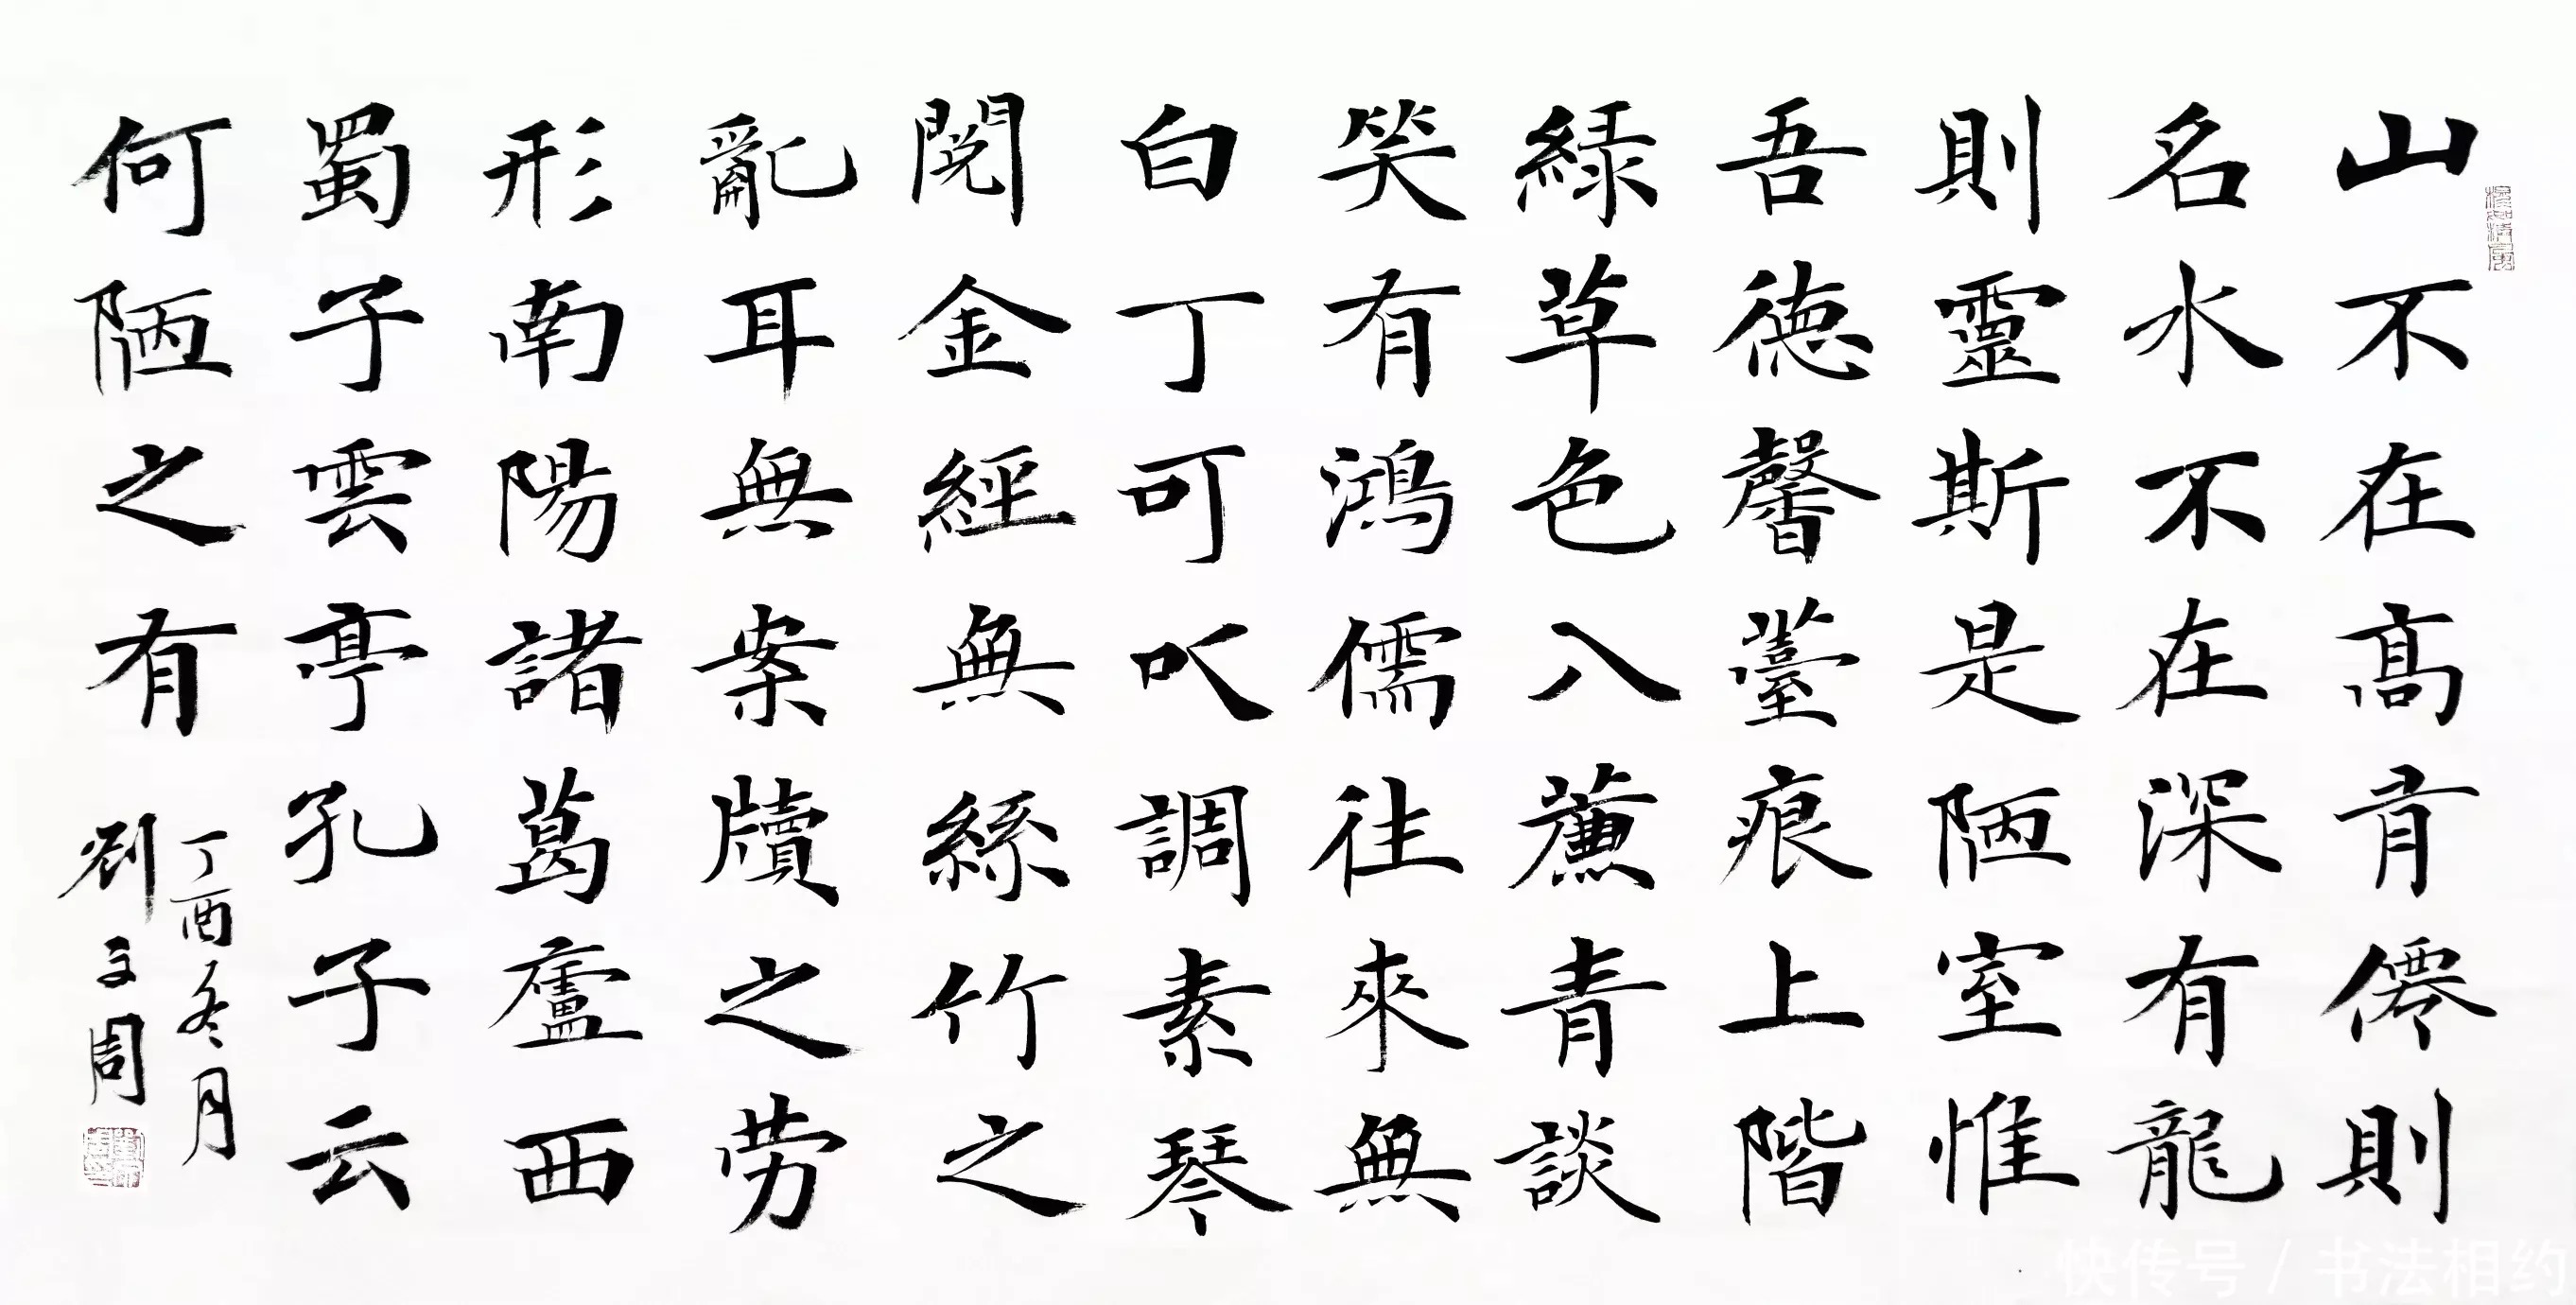 山不在高有僊則
名水不在深有龍
則靈斯是陋室惟
吾德馨薹痕上階
綠草色入薕青談
笑有鴻儒往來無
白丁可以調素琴
閱金經無絲竹之
亂耳無案牘之劳
形南陽諸葛廬西
蜀子雲亭孔子云
何陋之有
丁酉冬月
劉文周
快传号 / 书法相约